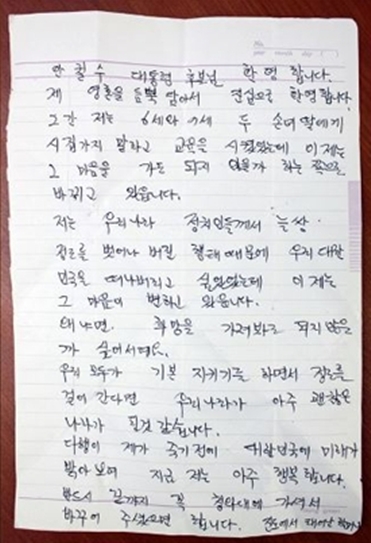 안철수 대통령 후보님 환영 합니다.
제 영혼을 듬뿍 담아서 진심으로 환영합니다.
그간 저는 6세와 7세 두 손녀 딸에게
시집가지 말라고 교육을 시켰었는데 이제는
그 마음을 가도 되지 않을가 하는 쪽으로
바뀌고 있읍니다.
저는 우리나라 정치인들께서 늘쌍
정도를 벗어나 버린 행태 때문에 우리 대한
민국을 떠나버리고 싶었었는데 이제는
그 마음이 변하고 있읍니다.
왜냐면. 희망을 가져봐도 되지 않을
까 싶어서예요.
우리 모두가 기본 지키기를 하면서 정도를
걸어 간다면 우리나라가 아주 괜찮은
나라가 될것 같습니다.
다행이 제가 죽기전에 대한민국에 미래가
밝아 보여 지금 저는 아주 행복 합니다.
반드시 끝까지 꼭 청와대에 가셔서
바꾸어 주셨으면 합니다. 에서 태어난